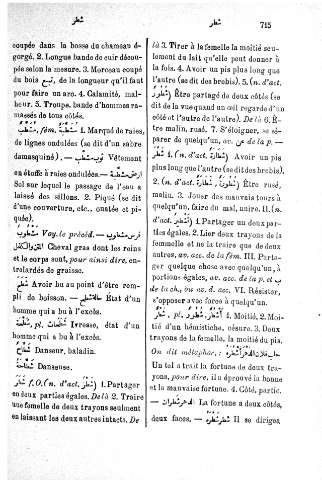 شطر
شطر
715
coupée dans la bosse du chameau é-
gorgé. 2. Longue bande de cuir décou-
pée selon la mesure. 3. Morceau coupé
du bois نبع, de la longueur qu'il faut
pour faire un arc. 4. Calamité, mal-
heur. 5. Troupe, bande d'hommes ra-
massés de tous côtés.
fém. 1. Marqué de raies,
de lignes ondulées (se dit d'un sabre
damasquiné). — Vêtement
en étoffe à raies ondulées. —
Sol sur lequel le passage de l'eau a
laissé des sillons. 2. Piqué (se dit
d'une couverture, etc., ouatée et pi-
quée).
Voy. le précéd. —
Cheval gras dont les reins
et le corps sont, pour ainsi dire, en-
trelardés de graisse.
Avoir bu au point d'être rem-
pli de boisson. — État d'un
homme qui a bu à l'excès.
pl. Ivresse, état d'un
homme qui a bu à l'excès.
Danseur, baladin.
Danseuse.
شطر f. O. (n. d'act. شطر) 1. Partager
en deux parties égales. De là 2. Traire
une femelle de deux trayons seulement
en laissant les deux autres intacts. De
là 3. Tirer à la femelle la moitié seu-
lement du lait qu'elle peut donner à
la fois. 4. Avoir un pis plus long que
l'autre (se dit des brebis). 5. (n. d'act.
شطور) Être partagé de deux côtés (se
dit de la vue quand un œil regarde d'un
côté et l'autre de l'autre). De là 6. Ê-
tre malin, rusé. 7. S'éloigner, se sé-
parer de quelqu'un, av. عن de la p. —
1. (n. d'act. شطارة) Avoir un pis
plus long que l'autre (se dit des brebis).
2. (n. d'act. شطارة, شطور) Être rusé,
malin. 3. Jouer des mauvais tours à
quelqu'un, faire du mal, nuire. II. (n.
d'act. تشطير) 1. Partager en deux par-
ties égales. 2. Lier deux trayons de la
femelle et ne la traire que de deux
autres, av. acc. de la fem. III. Parta-
ger quelque chose avec quelqu'un, à
portions égales, av. acc. de la p. et ب
de la ch., ou av. d. acc. VI. Résister,
s'opposer avec force à quelqu'un.
شطر, pl. أشطر, شطور 1. Moitié. 2. Moi-
tié d'hémistiche, césure. 3. Deux
trayons de la femelle, la moitié du pis.
On dit métaphor.: حلب فلان الدهر أشطره
Un tel a trait la fortune de deux tra-
yons, pour dire, il a éprouvé la bonne
et la mauvaise fortune. 4. Côté, partie.
— الدهر شطران La fortune a deux côtés,
deux faces. — Il se dirigea